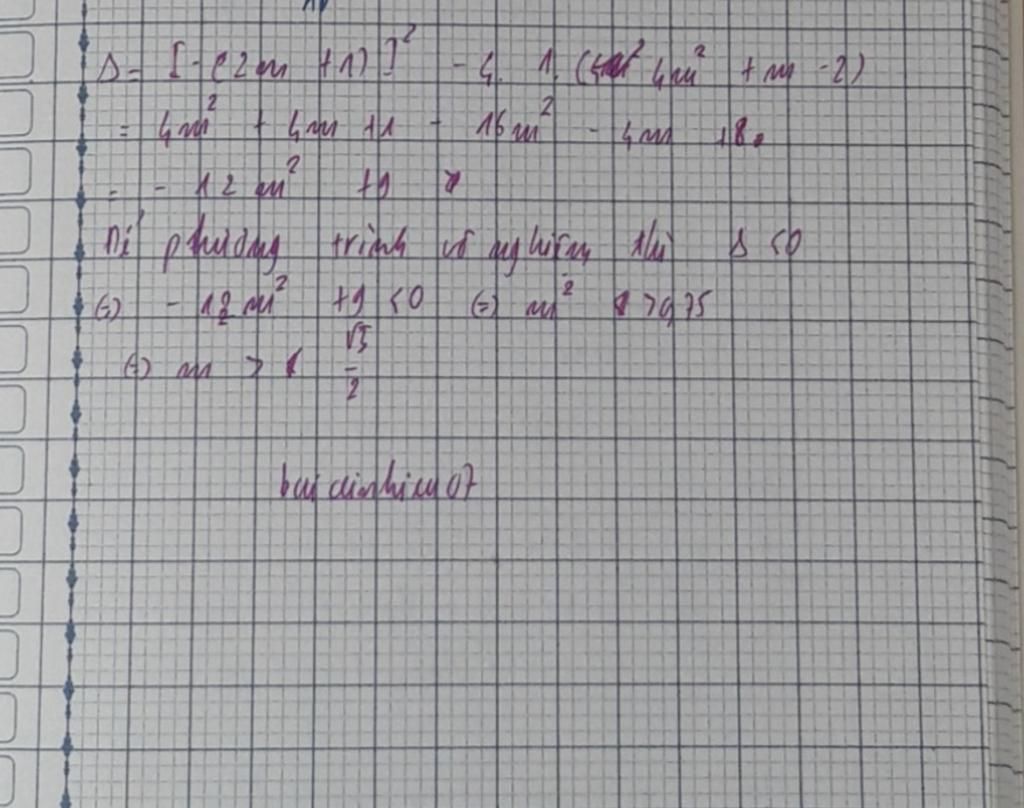 Δ = [-(2m + 1)]² - 4. 1. (4m² + m - 2)
= 4m² + 4m + 1 - 16m² - 4m + 8
= - 12m² + 9
Để phương trình vô nghiệm thì Δ < 0
⇔ - 12m² + 9 < 0 ⇔ m² > 0,75
⇔ m > √3/2
buidinhieu07